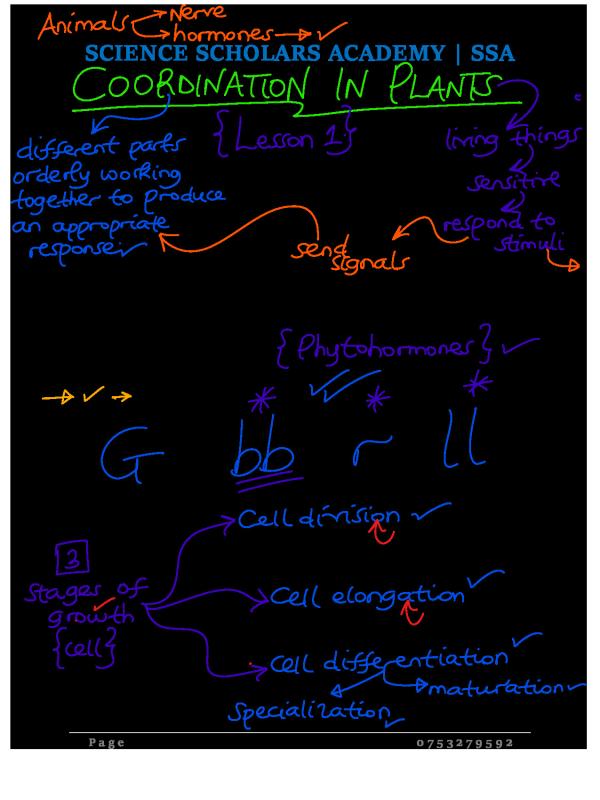 Animals Nerve
hormones
SCIENCE SCHOLARS ACADEMY | SSA
COORDINATION IN PLANTS
{Lesson 1}
different parts
orderly working
together to produce
an appropriate
response
living things
sensitive
respond to
stimuli
send
signals
{Phytohormones}
G bb r ll
3
stages of
growth
{cell}
Cell division
Cell elongation
Cell differentiation
maturation
Specialization
Page 0753279592